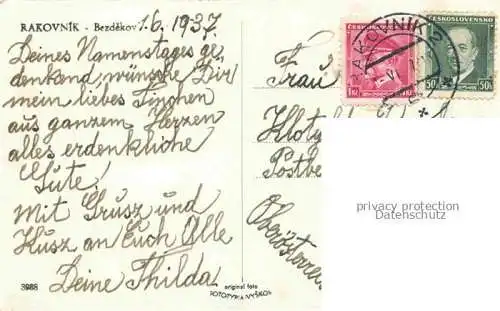 RAKOVNÍK - Bezděkov 1.6. 1937.
Deines Namenstages ge
denkend, wünsche Dir
mein liebes Tinchen
aus ganzem Herzen
alles erdenkliche
Gute!
Mit Grusz und
Kusz an Euch Alle
Deine Thilda
3988
original foto
FOTOTYPIA-VYŠKOV
RAKOVNÍK
ČESKOSLOVENSKO
50h
50h
Frau
Klot
Postbe
Oberösterrei
privacy protection
Datenschutz